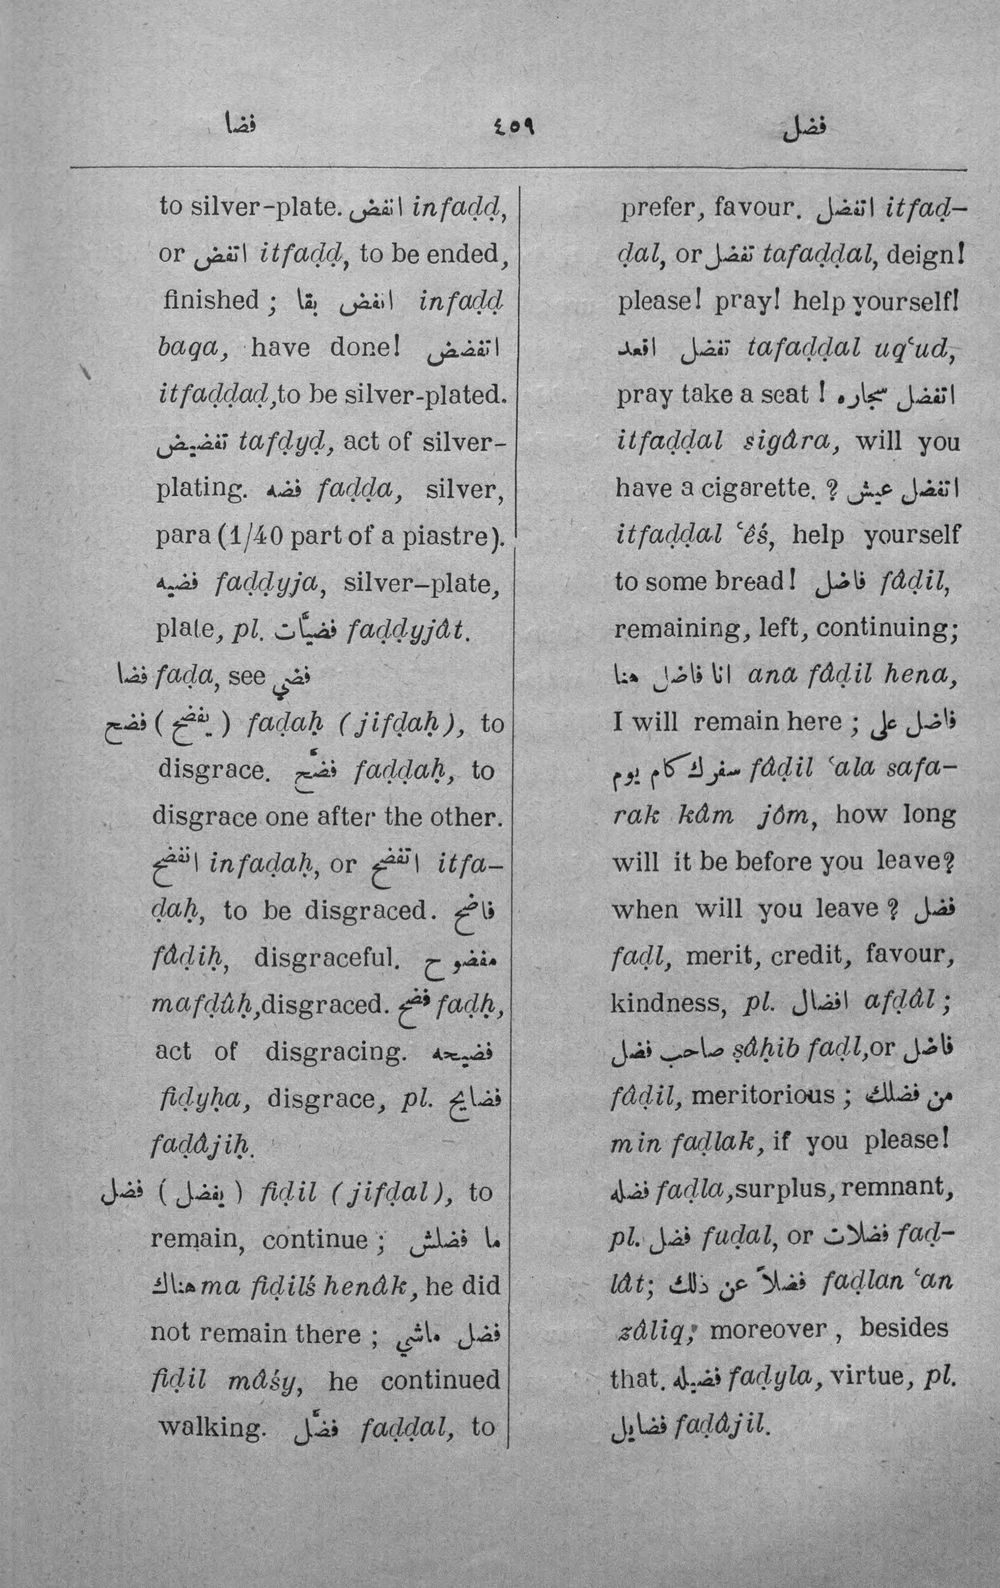 فضا ٤٥٩ فضل
to silver-plate. انفض infaḍḍ,
or اتفض itfaḍḍ, to be ended,
finished ; انفض بقا infaḍḍ
baqa, have done! اتفضض
itfaḍḍaḍ,to be silver-plated.
تفضيض tafḍyḍ, act of silver-
plating. فضه faḍḍa, silver,
para (1/40 part of a piastre).
فضيه faḍḍyja, silver-plate,
plate, pl. فضيَّات faḍḍyjât.
فضا faḍa, see فضي
فضح ( يفضح ) faḍaḥ (jifḍaḥ), to
disgrace. فضَّح faḍḍaḥ, to
disgrace one after the other.
انفضح infaḍaḥ, or اتفضح itfa-
ḍaḥ, to be disgraced. فاضح
fâḍiḥ, disgraceful. مفضوح
mafḍûḥ,disgraced. فضح faḍḥ,
act of disgracing. فضيحه
fiḍyḥa, disgrace, pl. فضايح
faḍâjiḥ.
فضل ( يفضل ) fiḍil (jifḍal), to
remain, continue ; ما فضلش
هناك ma fiḍilś henâk, he did
not remain there ; فضل ماشي
fiḍil mâśy, he continued
walking. فضَّل faḍḍal, to
prefer, favour. اتفضل itfaḍ-
ḍal, or تفضل tafaḍḍal, deign!
please! pray! help yourself!
تفضل اقعد tafaḍḍal uqʿud,
pray take a seat ! اتفضل سجاره
itfaḍḍal sigâra, will you
have a cigarette. ? اتفضل عيش
itfaḍḍal ʿêś, help yourself
to some bread! فاضل fâḍil,
remaining, left, continuing;
انا فاضل هنا ana fâḍil hena,
I will remain here ; فاضل على
سفرك كام يوم fâḍil ʿala safa-
rak kâm jôm, how long
will it be before you leave?
when will you leave ? فضل
faḍl, merit, credit, favour,
kindness, pl. افضال afḍâl ;
صاحب فضل ṣâḥib faḍl,or فاضل
fâḍil, meritorious ; من فضلك
min faḍlak, if you please!
فضله faḍla,surplus, remnant,
pl. فضل fuḍal, or فضلات faḍ-
lât; فضلاً عن ذلك faḍlan ʿan
zâliq, moreover , besides
that. فضيله faḍyla, virtue, pl.
فضايل faḍâjil.